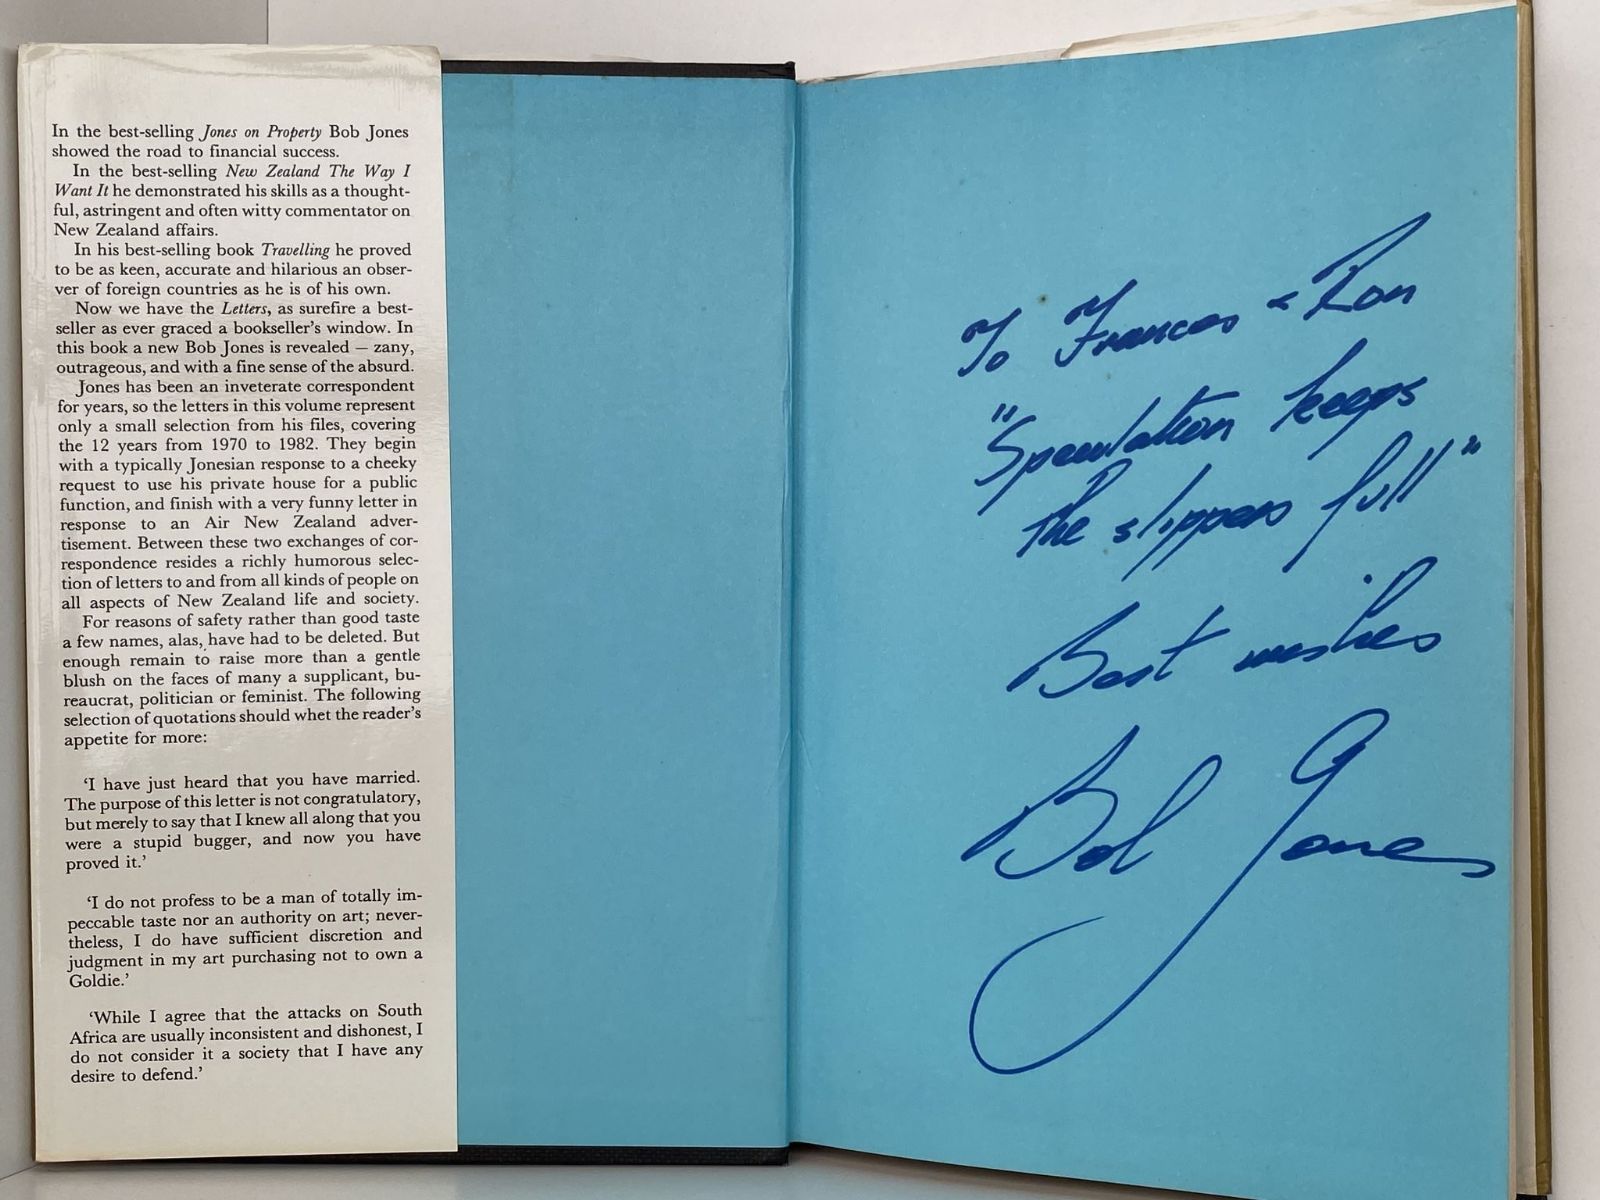 In the best-selling Jones on Property Bob Jones
showed the road to financial success.
In the best-selling New Zealand The Way I
Want It he demonstrated his skills as a thought-
ful, astringent and often witty commentator on
New Zealand affairs.
In his best-selling book Travelling he proved
to be as keen, accurate and hilarious an obser-
ver of foreign countries as he is of his own.
Now we have the Letters, as surefire a best-
seller as ever graced a bookseller's window. In
this book a new Bob Jones is revealed — zany,
outrageous, and with a fine sense of the absurd.
Jones has been an inveterate correspondent
for years, so the letters in this volume represent
only a small selection from his files, covering
the 12 years from 1970 to 1982. They begin
with a typically Jonesian response to a cheeky
request to use his private house for a public
function, and finish with a very funny letter in
response to an Air New Zealand adver-
tisement. Between these two exchanges of cor-
respondence resides a richly humorous selec-
tion of letters to and from all kinds of people on
all aspects of New Zealand life and society.
For reasons of safety rather than good taste
a few names, alas, have had to be deleted. But
enough remain to raise more than a gentle
blush on the faces of many a supplicant, bu-
reaucrat, politician or feminist. The following
selection of quotations should whet the reader's
appetite for more:
'I have just heard that you have married.
The purpose of this letter is not congratulatory,
but merely to say that I knew all along that you
were a stupid bugger, and now you have
proved it.'
'I do not profess to be a man of totally im-
peccable taste nor an authority on art; never-
theless, I do have sufficient discretion and
judgment in my art purchasing not to own a
Goldie.'
'While I agree that the attacks on South
Africa are usually inconsistent and dishonest, I
do not consider it a society that I have any
desire to defend.'
To Frances & Ron
"Speculation keeps
the slippers full"
Best wishes
Bob Jones